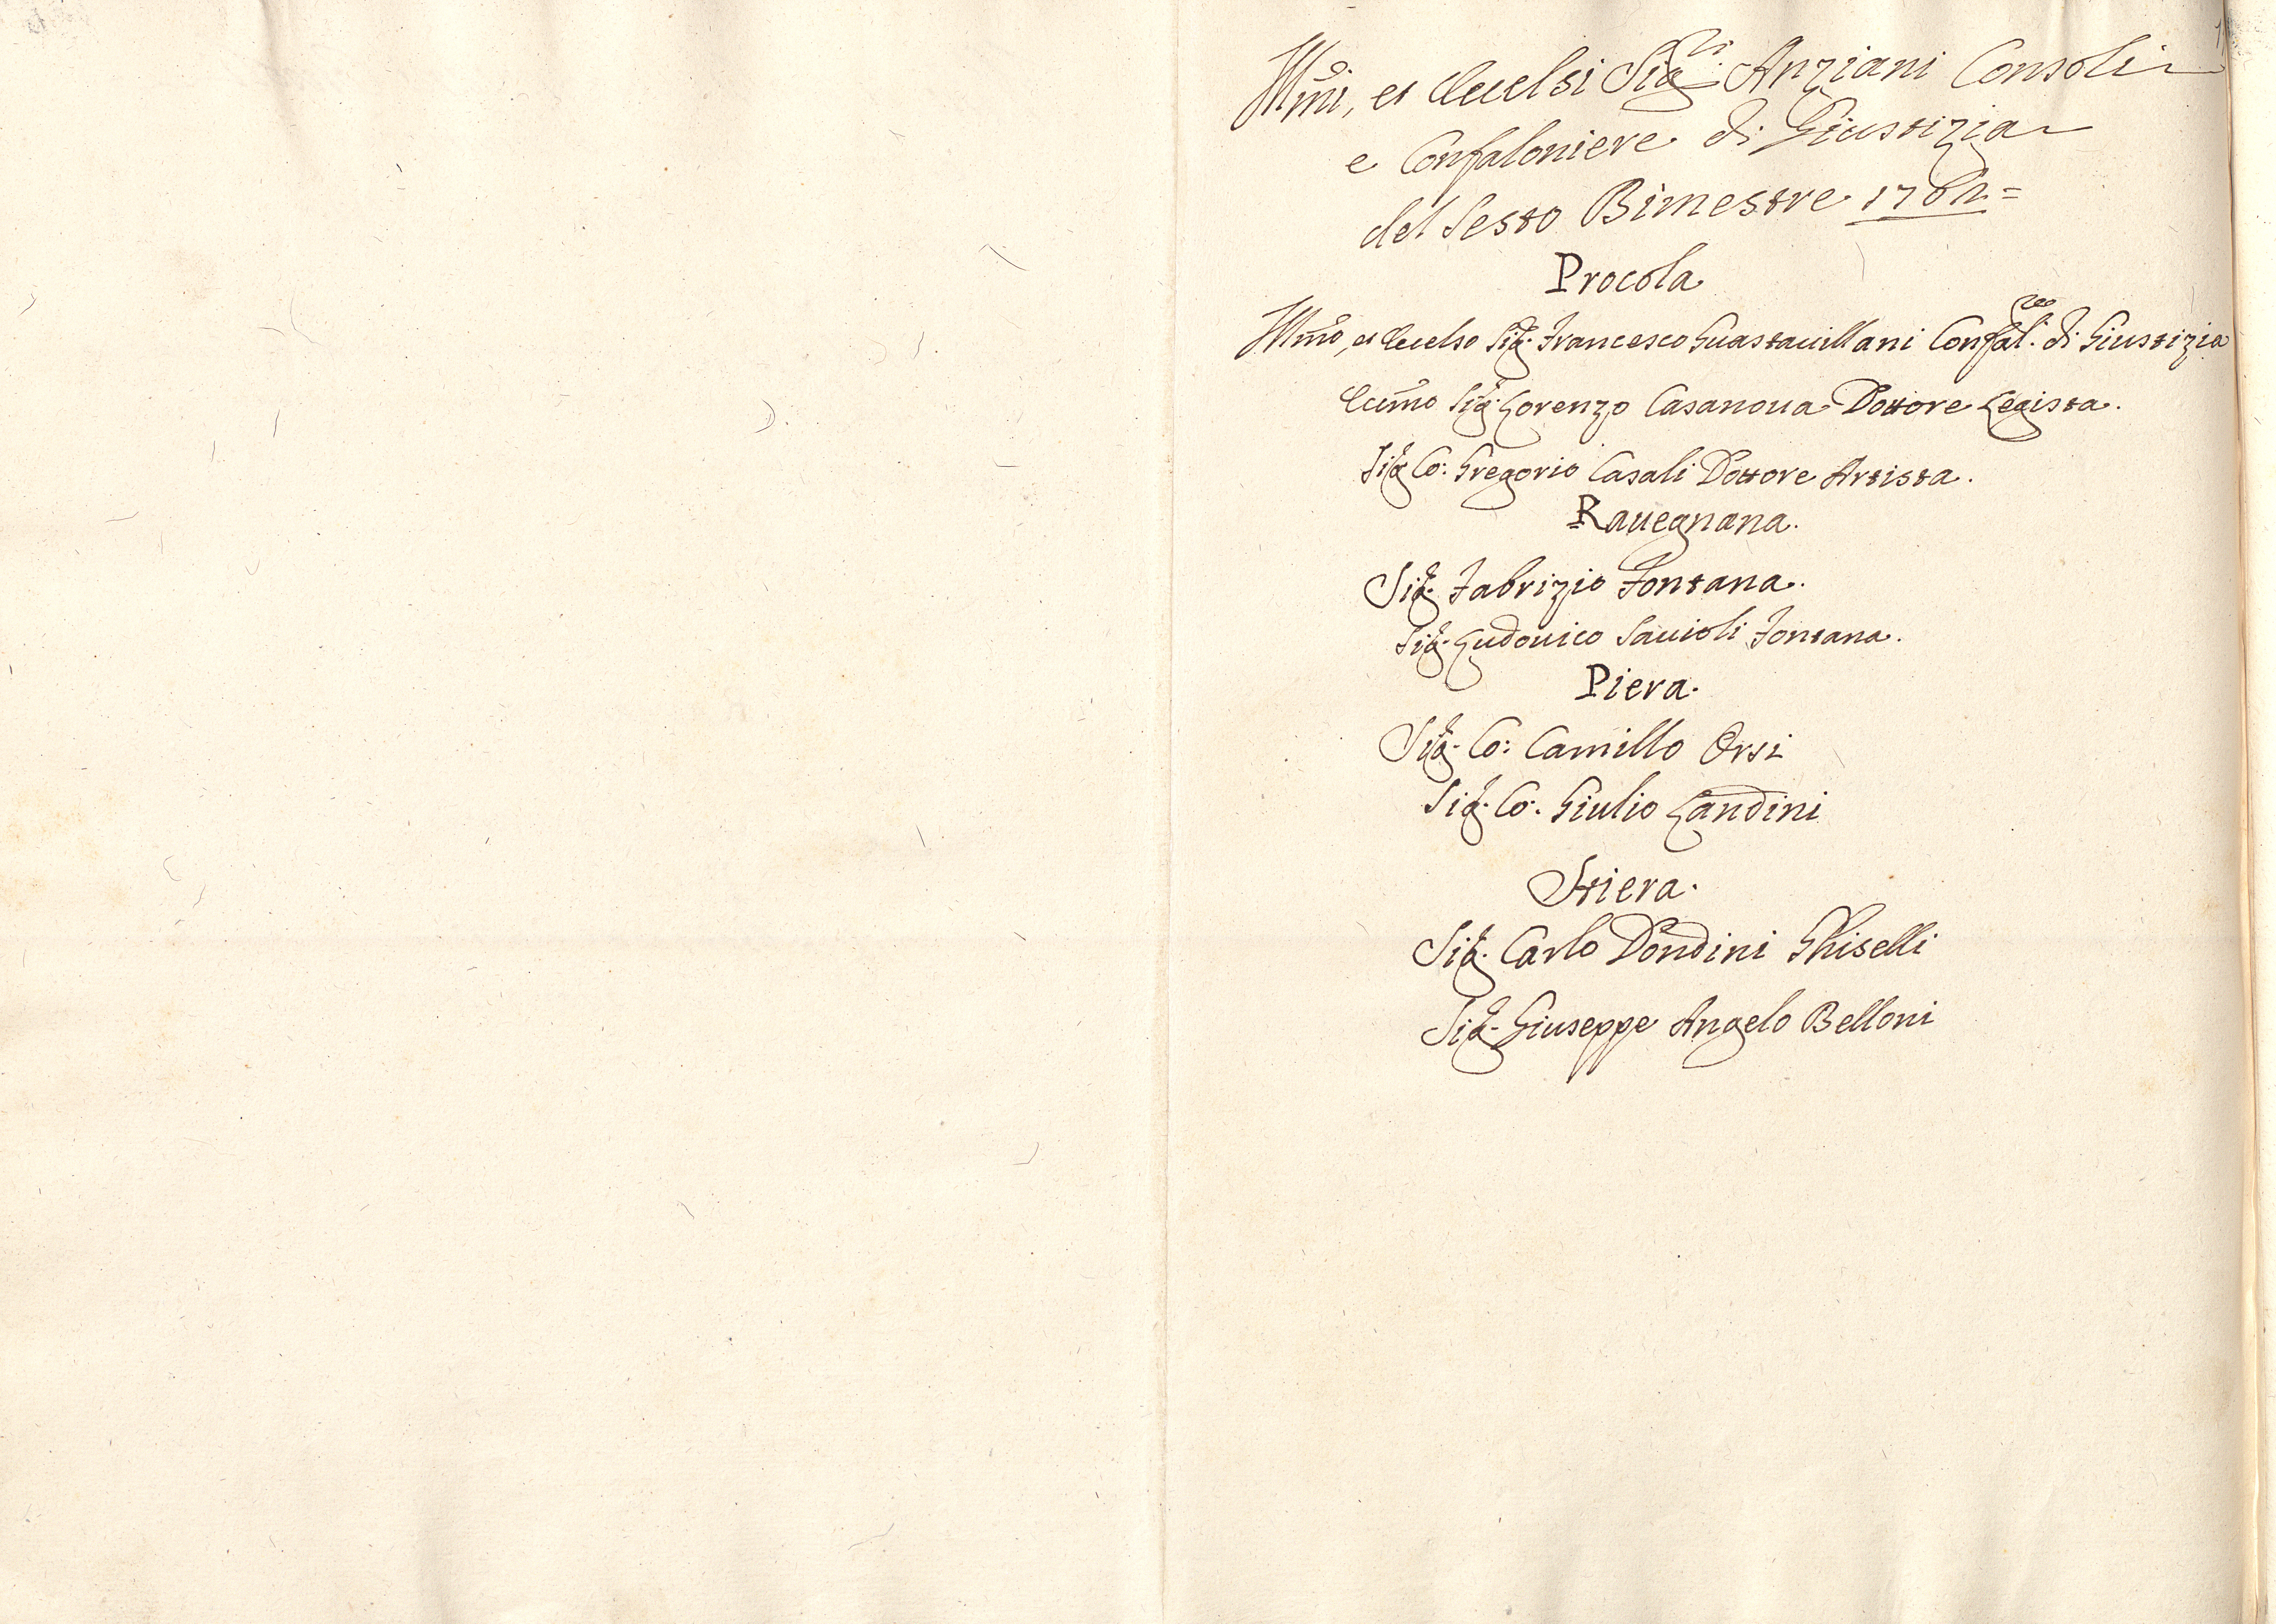 Illmi, et Eccelsi Sigri Anziani Consoli
e Confaloniere di Giustizia
del Sesto Bimestre
Procola
Illmo, et Eccelso Sig. Francesco Guastavillani Confalre di Giustizia
Eccmo Sig. Lorenzo Casanova Dottore Legista.
Sig. Co: Gregorio Casali Dottore Artista.
Ravegnana.
Sig. Fabrizio Fontana.
Sig. Ludovico Savioli Fontana.
Piera.
Sig. Co: Camillo Orsi
Sig. Co. Giulio Landini
Stiera.
Sig. Carlo Dondini Ghiselli
Sig. Giuseppe Angelo Belloni